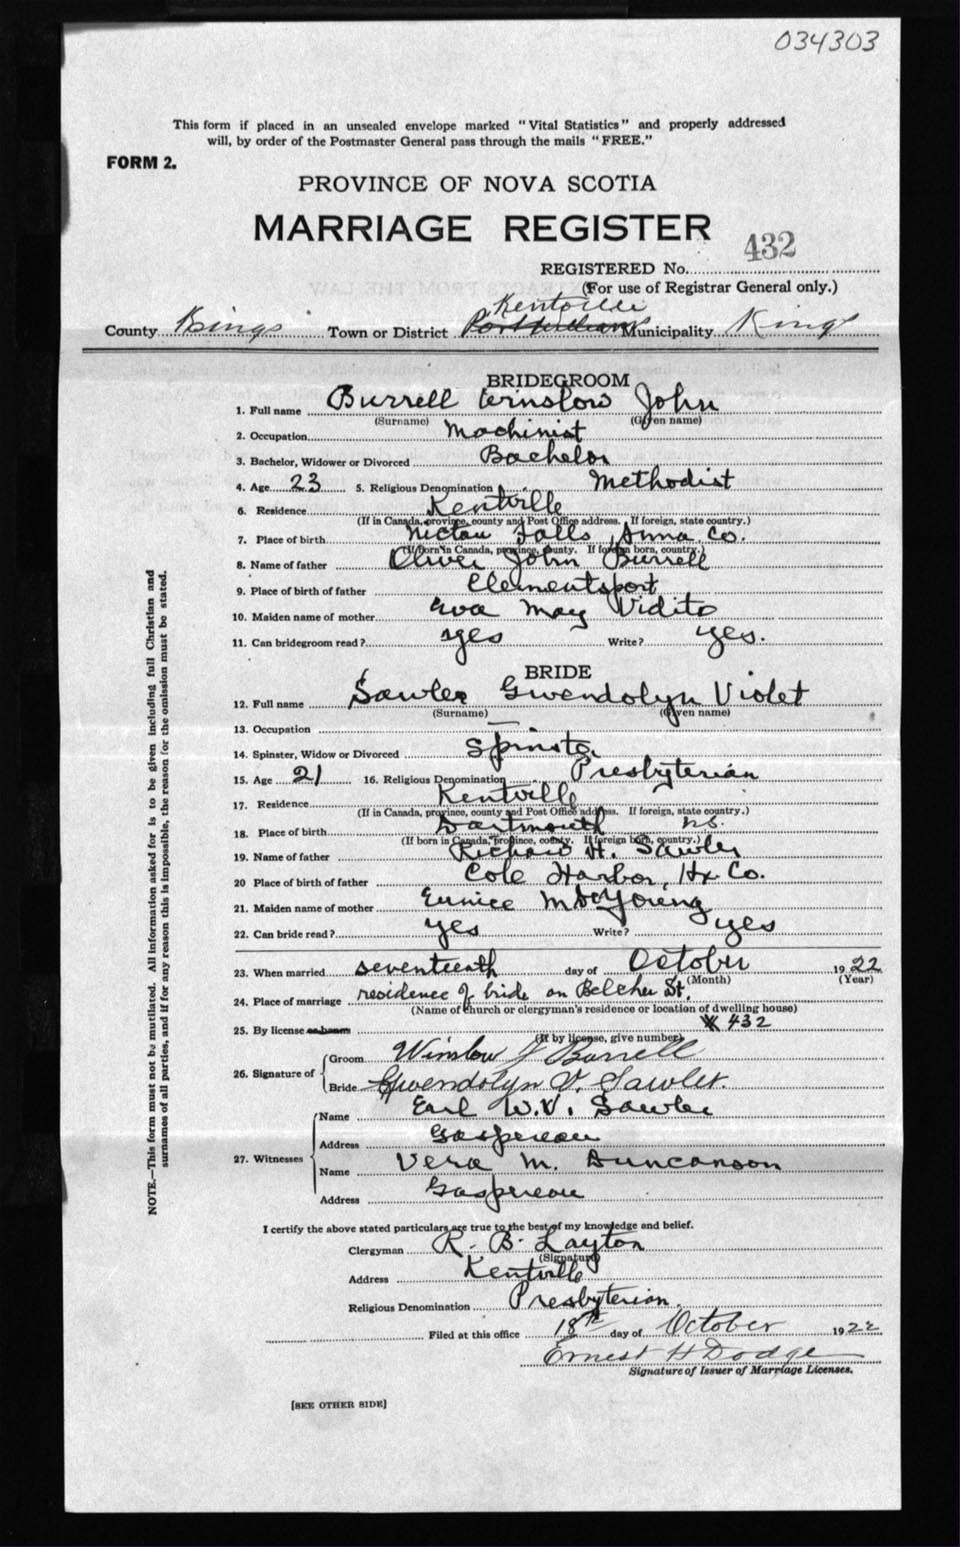 034303
This form if placed in an unsealed envelope marked "Vital Statistics" and properly addressed
will, by order of the Postmaster General pass through the mails "FREE."
FORM 2.
PROVINCE OF NOVA SCOTIA
MARRIAGE REGISTER
432
REGISTERED No.
(For use of Registrar General only.)
Kentville
County Kings Town or District Port Williams Municipality Kings
BRIDEGROOM
1. Full name Burrell Winslow John
(Surname) (Given name)
2. Occupation Machinist
3. Bachelor, Widower or Divorced Bachelor
4. Age 23 5. Religious Denomination Methodist
6. Residence Kentville
(If in Canada, province, county and Post Office address. If foreign, state country.)
7. Place of birth Nictau Falls, Anna Co.
(If born in Canada, province, county. If foreign born, country.)
8. Name of father Oliver John Burrell
9. Place of birth of father Clementsport
10. Maiden name of mother Eva May Vidito
11. Can bridegroom read? yes Write? yes.
BRIDE
12. Full name Sawler Gwendolyn Violet
(Surname) (Given name)
13. Occupation —
14. Spinster, Widow or Divorced Spinster
15. Age 21 16. Religious Denomination Presbyterian
17. Residence Kentville
(If in Canada, province, county and Post Office address. If foreign, state country.)
18. Place of birth Dartmouth N.S.
(If born in Canada, province, county. If foreign born, country.)
19. Name of father Richard H. Sawler
20 Place of birth of father Cole Harbor, Hx Co.
21. Maiden name of mother Eunice
22. Can bride read? yes Write? yes
23. When married seventeenth day of October 1922
(Month) (Year)
24. Place of marriage residence of bride on Belcher St.
(Name of church or clergyman's residence or location of dwelling house)
25. By license or banns 432
(If by license, give number)
26. Signature of
Groom Winslow J Burrell
Bride Gwendolyn V. Sawler.
27. Witnesses
Name Earl W.V. Sawler
Address Gaspereau
Name Vera M. Duncanson
Address Gaspereau
I certify the above stated particulars are true to the best of my knowledge and belief.
Clergyman R. B. Layton
(Signature)
Address Kentville
Religious Denomination Presbyterian.
Filed at this office 18th day of October 1922
Ernest H Dodge
Signature of Issuer of Marriage Licenses.
[SEE OTHER SIDE]
NOTE.—This form must not be mutilated. All information asked for is to be given including full Christian and
surnames of all parties, and if for any reason this is impossible, the reason for the omission must be stated.